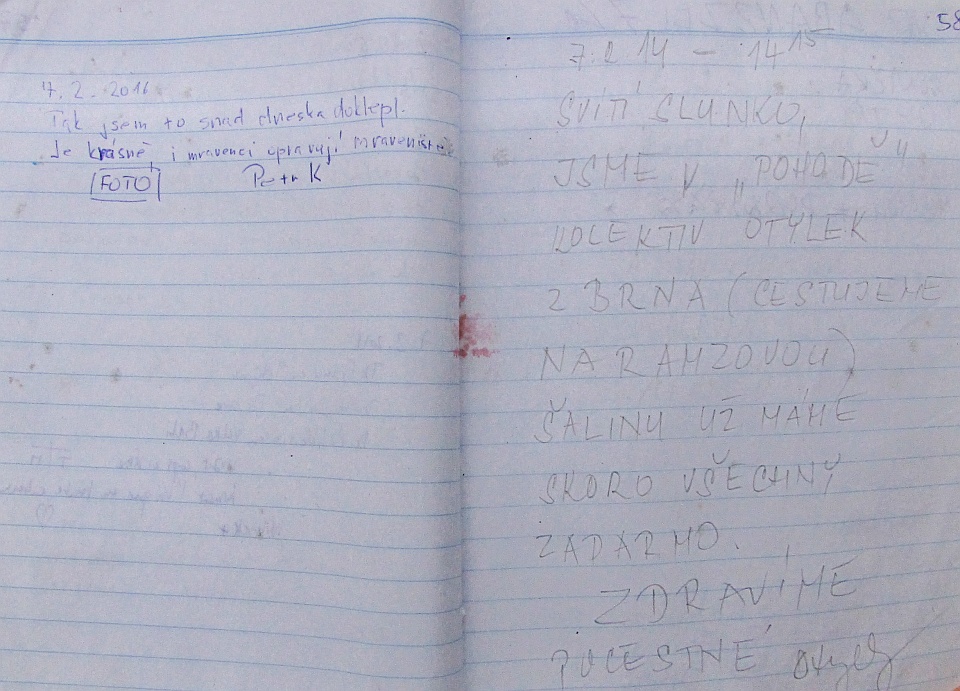 7.2.2016
Tak jsem to snad dneska doklepl.
Je krásně, i mravenci opravují mraveniště
FOTO Petr K
58
7.2 14 - 14 15
SVÍTÍ SLUNKO,
JSME V "POHODĚ"
KOLEKTIV OTYLEK
Z BRNA (CESTUJEME
NA RAMZOVOU)
ŠALINU UŽ MÁME
SKORO VŠECHNY
ZADARMO.
ZDRAVÍME
POCESTNÉ